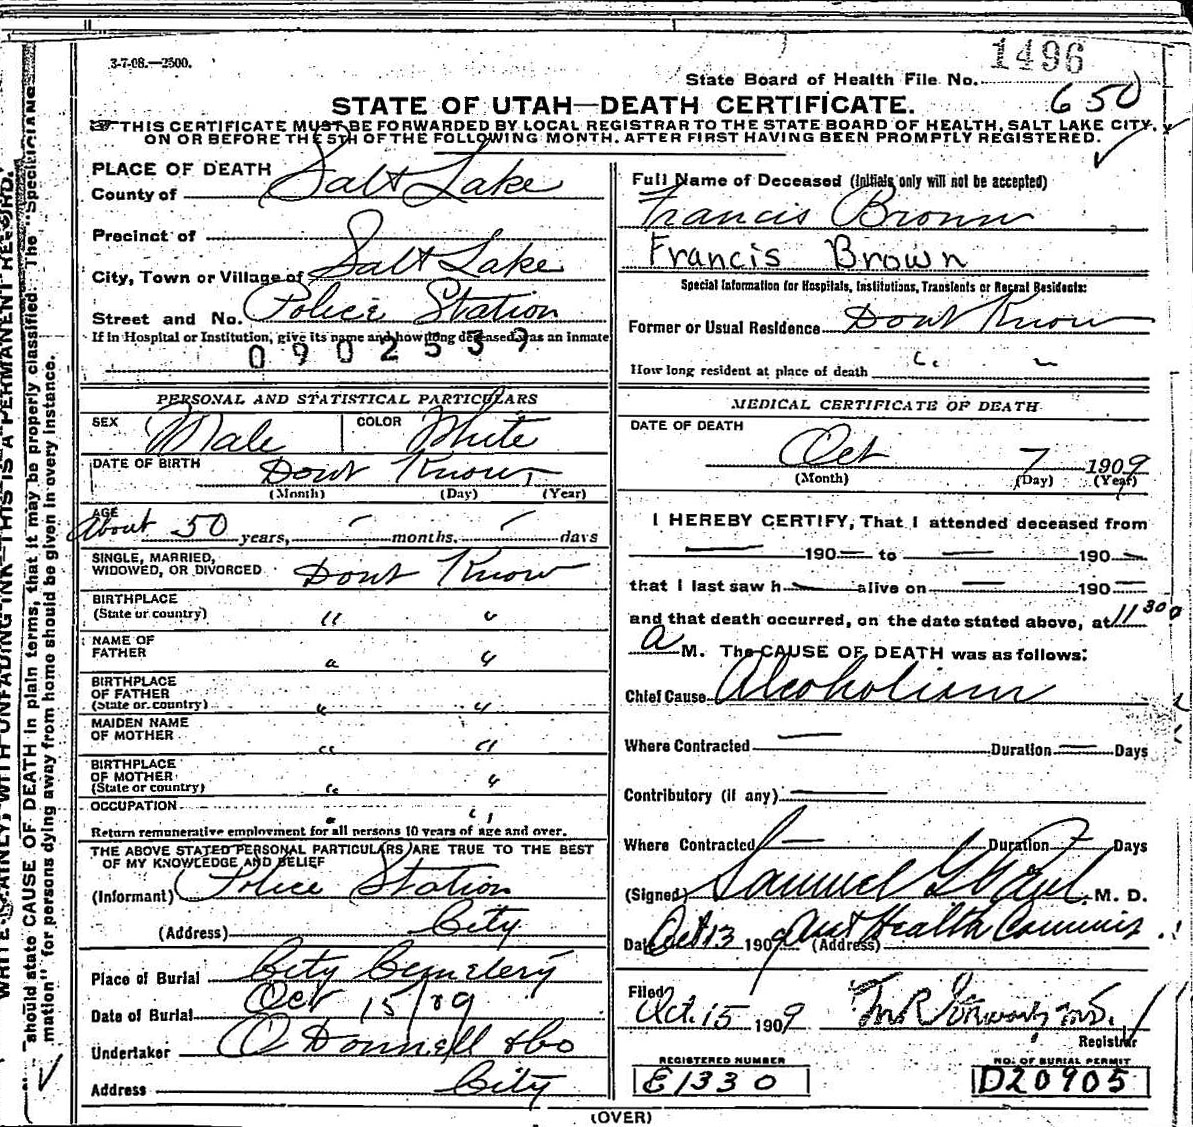 3-7-08.—2500.
1496
State Board of Health File No.
650
STATE OF UTAH—DEATH CERTIFICATE.
THIS CERTIFICATE MUST BE FORWARDED BY LOCAL REGISTRAR TO THE STATE BOARD OF HEALTH, SALT LAKE CITY,
ON OR BEFORE THE 5TH OF THE FOLLOWING MONTH, AFTER FIRST HAVING BEEN PROMPTLY REGISTERED.
PLACE OF DEATH
County of Salt Lake
Precinct of
City, Town or Village of Salt Lake
Street and No. Police Station
If in Hospital or Institution, give its name and how long deceased was an inmate
0902539
PERSONAL AND STATISTICAL PARTICULARS
SEX Male COLOR White
DATE OF BIRTH Dont Know
(Month) (Day) (Year)
AGE
About 50 years, — months, — days
SINGLE, MARRIED,
WIDOWED, OR DIVORCED Dont Know
BIRTHPLACE
(State or country) " "
NAME OF
FATHER " "
BIRTHPLACE
OF FATHER
(State or country) " "
MAIDEN NAME
OF MOTHER " "
BIRTHPLACE
OF MOTHER
(State or country) " "
OCCUPATION " "
Return remunerative employment for all persons 10 years of age and over.
THE ABOVE STATED PERSONAL PARTICULARS ARE TRUE TO THE BEST
OF MY KNOWLEDGE AND BELIEF
(Informant) Police Station
(Address) City
Place of Burial City Cemetery
Date of Burial Oct 15/09
Undertaker O Donnell & Co
Address City
Full Name of Deceased (Initials only will not be accepted)
Francis Brown
Francis Brown
Special Information for Hospitals, Institutions, Transients or Recent Residents:
Former or Usual Residence Dont Know
How long resident at place of death " "
MEDICAL CERTIFICATE OF DEATH
DATE OF DEATH
Oct 7 1909
(Month) (Day) (Year)
I HEREBY CERTIFY, That I attended deceased from
— 190— to — 190—
that I last saw h— alive on — 190—
and that death occurred, on the date stated above, at 11 30
a M. The CAUSE OF DEATH was as follows:
Chief Cause Alcoholism
Where Contracted — Duration — Days
Contributory (if any) —
Where Contracted — Duration Days
(Signed) Samuel G Paul M. D.
Date Oct 13 1909 (Address) Asst Health Commis
Filed
Oct. 15 1909
Registrar
REGISTERED NUMBER
E1330
NO. OF BURIAL PERMIT
D20905
(OVER)
WRITE PLAINLY, WITH UNFADING INK—THIS IS A PERMANENT RECORD.
should state CAUSE OF DEATH in plain terms, that it may be properly classified. The "Special
mation" for persons dying away from home should be given in every instance.